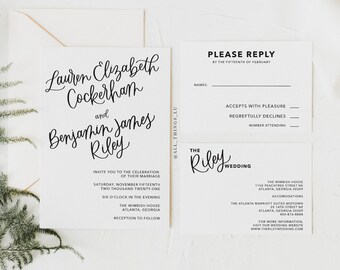 Lauren Elizabeth
Cockerham
and
Benjamin James
Riley
INVITE YOU TO THE CELEBRATION
OF THEIR MARRIAGE
SATURDAY, NOVEMBER FIFTEENTH
TWO THOUSAND TWENTY-ONE
SIX O'CLOCK IN THE EVENING
THE WIMBISH HOUSE
ATLANTA, GEORGIA
RECEPTION TO FOLLOW
@ALL_THINGS_LU
PLEASE REPLY
BY THE FIFTEENTH OF FEBRUARY
NAMES:
ACCEPTS WITH PLEASURE
REGRETFULLY DECLINES
NUMBER ATTENDING
THE
Riley
WEDDING
THE WIMBISH HOUSE
1150 PEACHTREE ST NE
ATLANTA, GEORGIA
ACCOMODATIONS
ATLANTA MARRIOTT SUITES
35 14TH STREET NE
ATLANTA, GEORGIA
FOR MORE INFORMATION,
VISIT OUR WEDDING WEBSITE